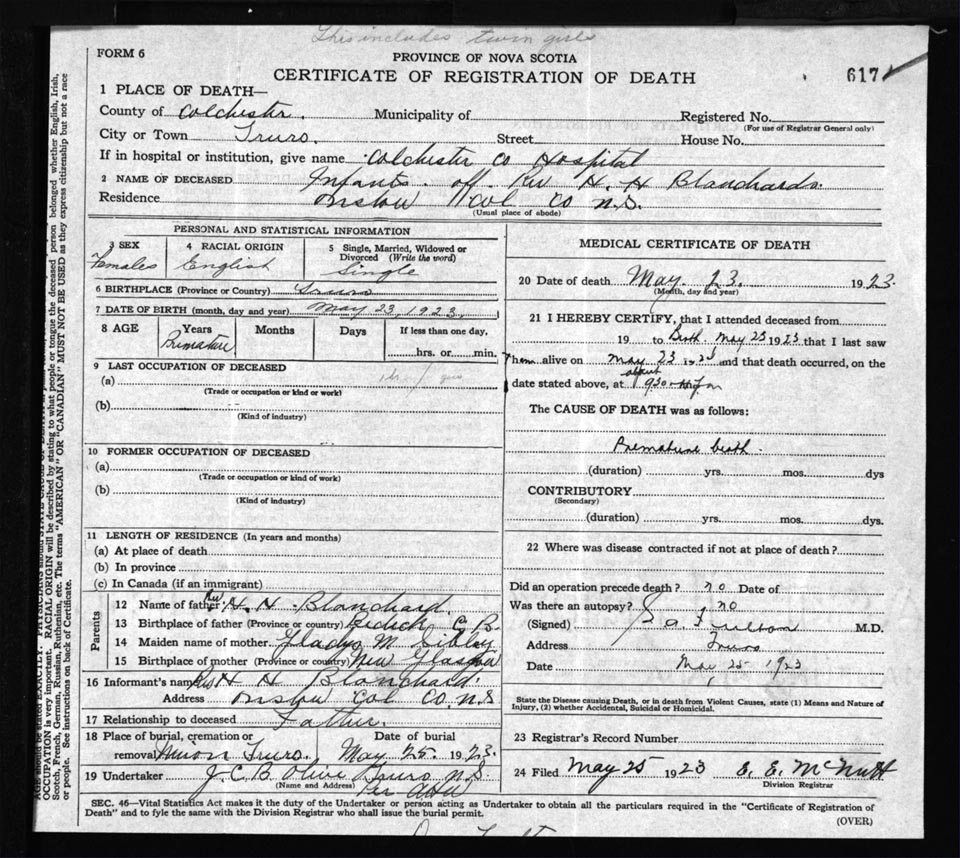 This includes twin girls
FORM 6
PROVINCE OF NOVA SCOTIA
CERTIFICATE OF REGISTRATION OF DEATH
617
1 PLACE OF DEATH—
County of Colchester. Municipality of Registered No.
(For use of Registrar General only)
City or Town Truro. Street House No.
If in hospital or institution, give name Colchester Co Hospital
2 NAME OF DECEASED Infants off Rev H. H Blanchards.
Residence Onslow Col Co N.S.
(Usual place of abode)
PERSONAL AND STATISTICAL INFORMATION
3 SEX
Females
4 RACIAL ORIGIN
English
5 Single, Married, Widowed or
Divorced (Write the word)
Single
6 BIRTHPLACE (Province or Country) Truro
7 DATE OF BIRTH (month, day and year) May 23, 1923.
8 AGE Years Months Days If less than one day,
Premature
hrs. or min.
9 LAST OCCUPATION OF DECEASED
(a)
(Trade or occupation or kind or work)
(b)
(Kind of industry)
10 FORMER OCCUPATION OF DECEASED
(a)
(Trade or occupation or kind of work)
(b)
(Kind of industry)
11 LENGTH OF RESIDENCE (In years and months)
(a) At place of death
(b) In province
(c) In Canada (if an immigrant)
Parents
12 Name of father Rev H. H Blanchard.
13 Birthplace of father (Province or country) C B.
14 Maiden name of mother Gladys M Sibley
15 Birthplace of mother (Province or country) New Glasgow
16 Informant's name Rev H H Blanchard.
Address Onslow Col Co N.S
17 Relationship to deceased Father.
18 Place of burial, cremation or
removal Union Truro.
Date of burial
May 25. 1923.
19 Undertaker J. C. B. Olive Truro N.S.
(Name and Address) Per
MEDICAL CERTIFICATE OF DEATH
20 Date of death May 23. 1923.
(Month, day and year)
21 I HEREBY CERTIFY, that I attended deceased from
19 to Birth. May 23 1923 that I last saw
Them alive on May 23 1923 and that death occurred, on the
date stated above, at about 930
The CAUSE OF DEATH was as follows:
Premature birth.
(duration) yrs. mos. dys
CONTRIBUTORY
(Secondary)
(duration) yrs. mos. dys.
22 Where was disease contracted if not at place of death?
Did an operation precede death? no Date of
Was there an autopsy? no
(Signed) Fulton M.D.
Address Truro
Date May 25 1923
State the Disease causing Death, or in death from Violent Causes, state (1) Means and Nature of
Injury, (2) whether Accidental, Suicidal or Homicidal.
23 Registrar's Record Number
24 Filed May 25 1923 E. E. McNutt
Division Registrar
SEC. 46—Vital Statistics Act makes it the duty of the Undertaker or person acting as Undertaker to obtain all the particulars required in the "Certificate of Registration of
Death" and to fyle the same with the Division Registrar who shall issue the burial permit.
(OVER)
OCCUPATION is very important. RACIAL ORIGIN will be described by stating to what people or tongue the deceased person belonged whether English, Irish,
Scotch, French, German, Russian, Ruthenian, etc. The terms "AMERICAN" OR "CANADIAN" MUST NOT BE USED as they express citizenship but not a race
or people. See instructions on back of Certificate.